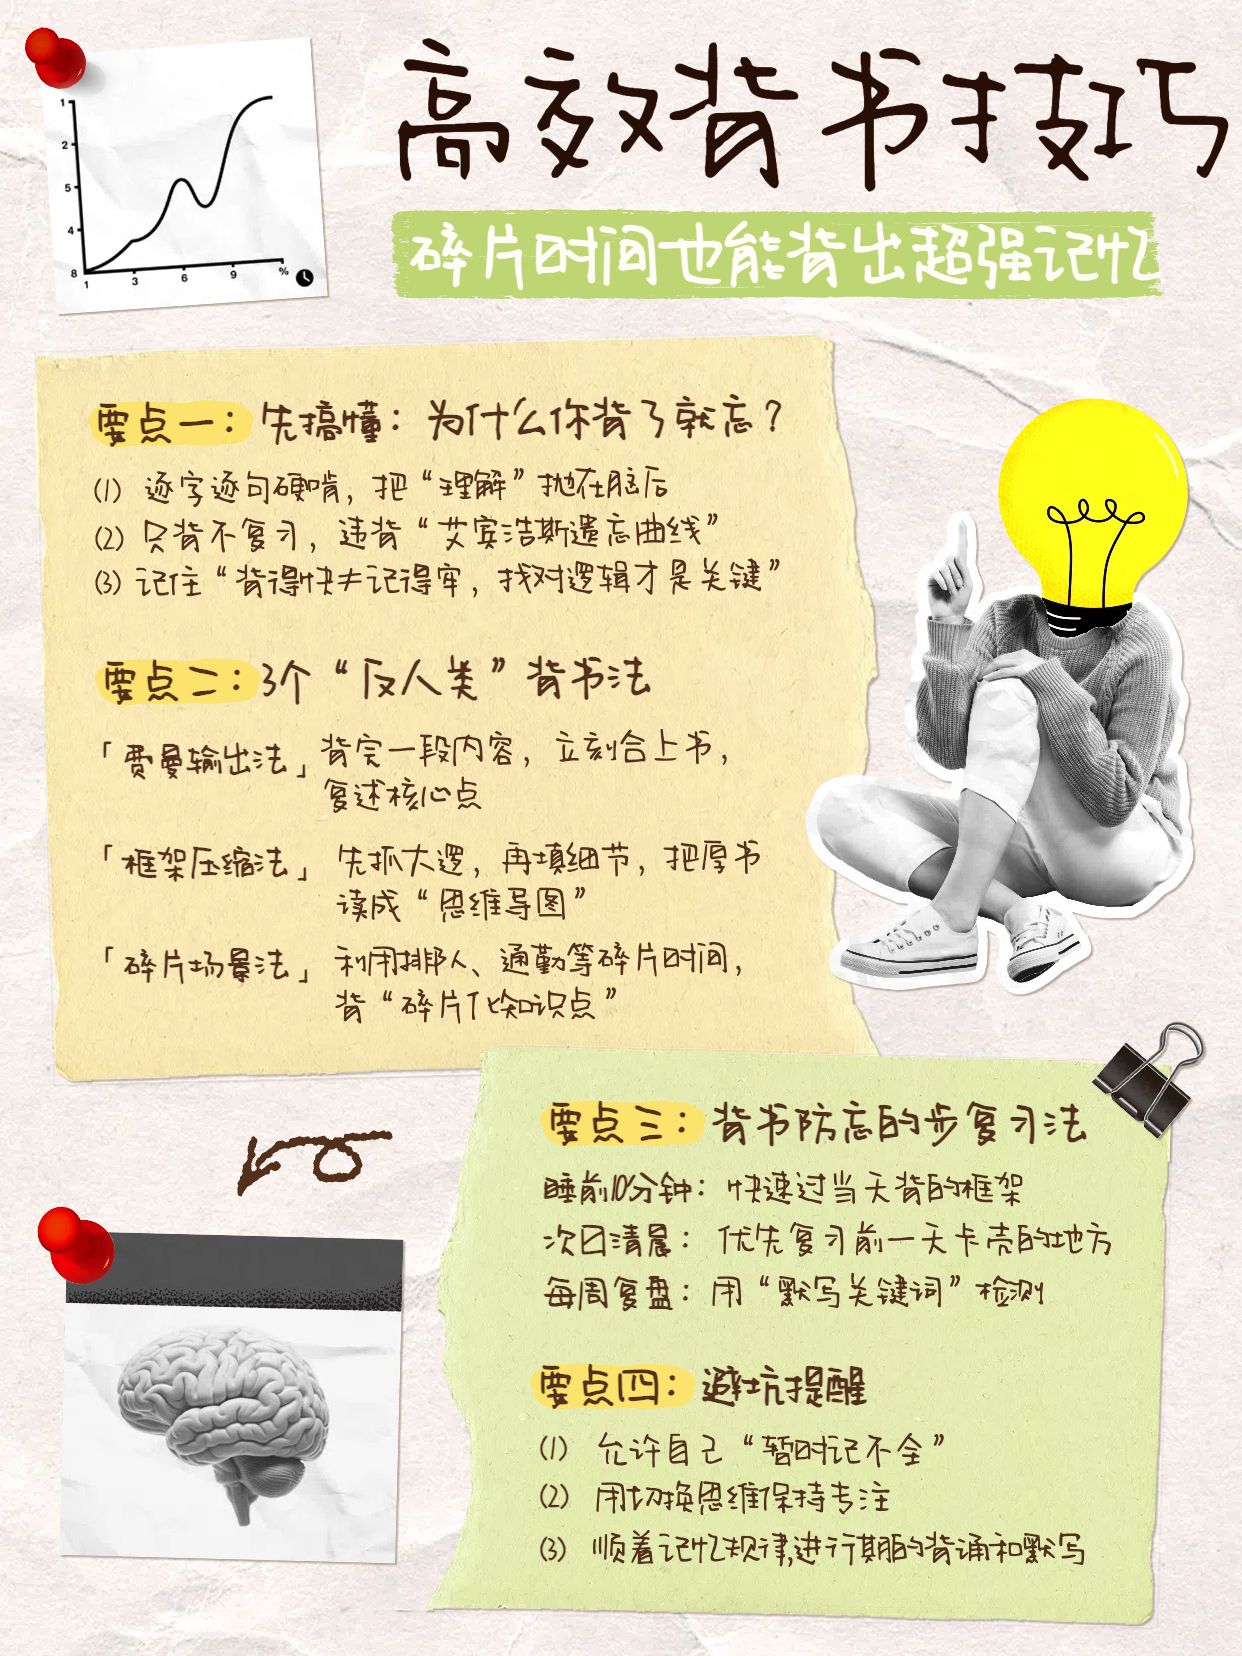 高效背书技巧
碎片时间也能背出超强记忆
1
2
5
4
8
1 3 6 9 %
要点一：先搞懂：为什么你背了就忘？
(1) 逐字逐句硬啃，把“理解”抛在脑后
(2) 只背不复习，违背“艾宾浩斯遗忘曲线”
(3) 记住“背得快≠记得牢，找对逻辑才是关键”
要点二：3个“反人类”背书法
「费曼输出法」背完一段内容，立刻合上书，
复述核心点
「框架压缩法」先抓大逻，再填细节，把厚书
读成“思维导图”
「碎片场景法」利用排队、通勤等碎片时间，
背“碎片化知识点”
要点三：背书防忘的步复习法
睡前10分钟：快速过当天背的框架
次日清晨：优先复习前一天卡壳的地方
每周复盘：用“默写关键词”检测
要点四：避坑提醒
(1) 允许自己“暂时记不全”
(2) 用切换思维保持专注
(3) 顺着记忆规律,进行期的背诵和默写